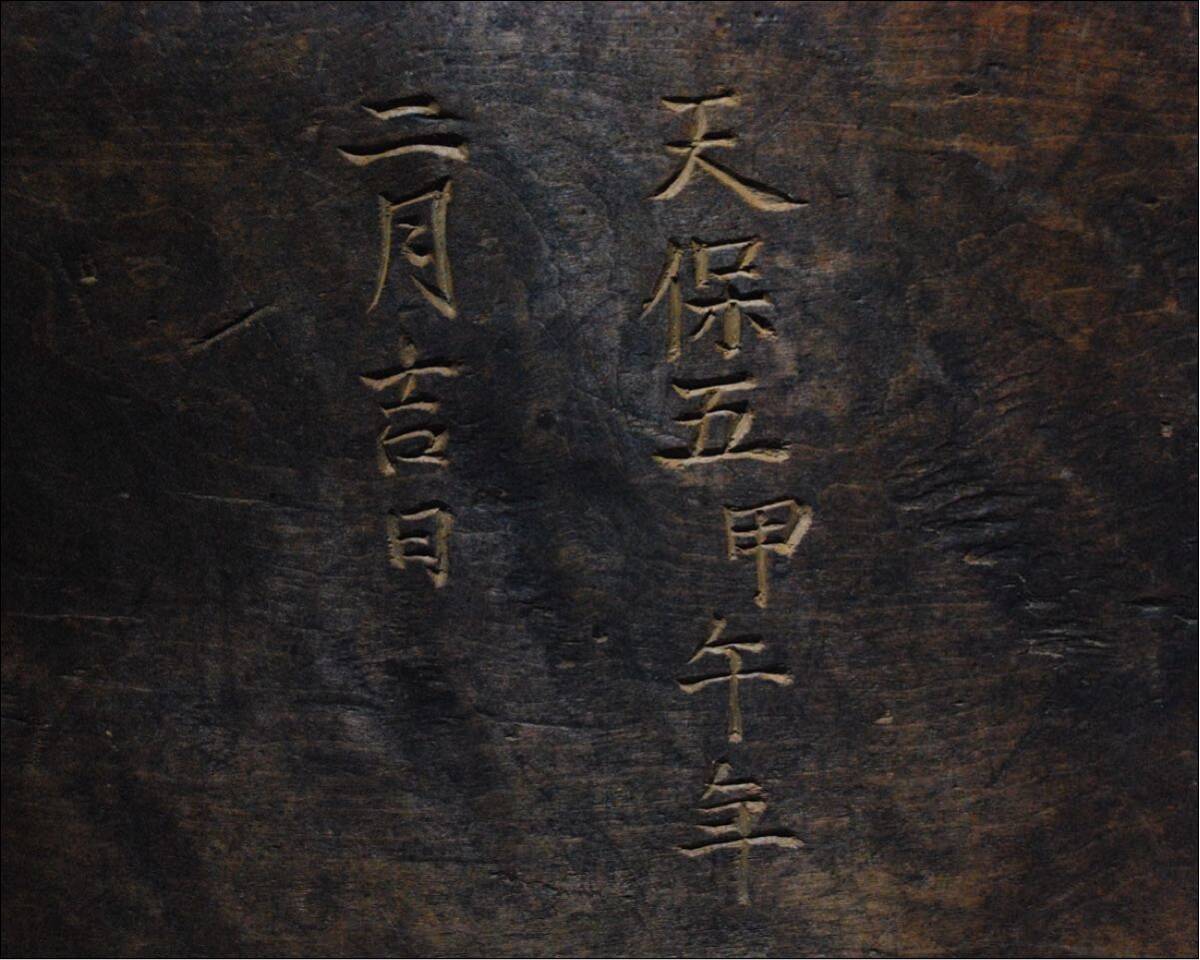 天保五甲午年
二月吉日